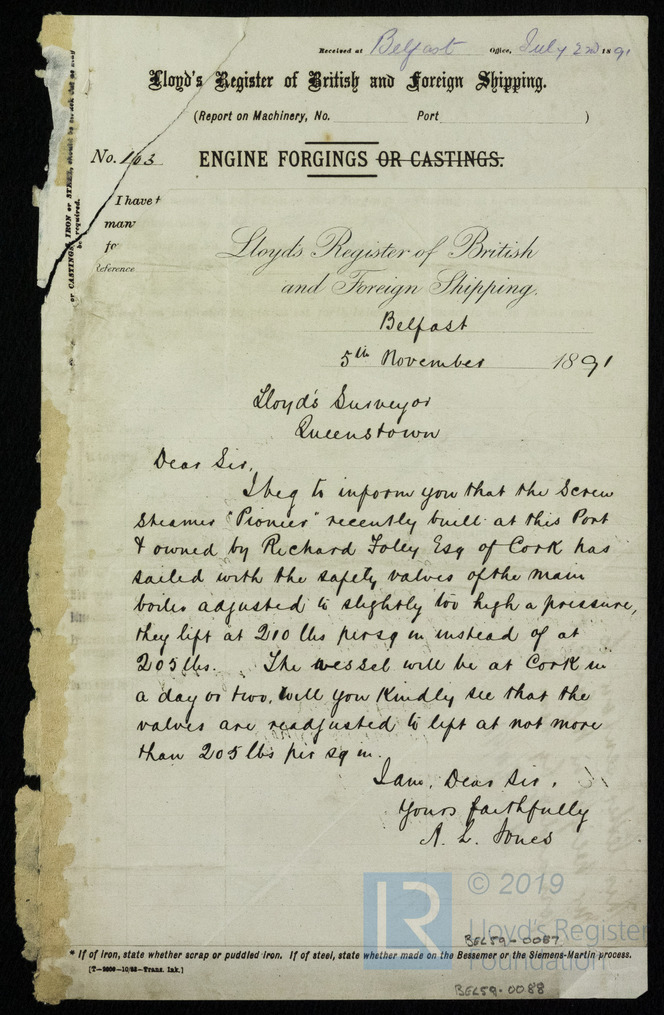 Received at Belfast Office, July 2nd 1891
Lloyd's Register of British and Foreign Shipping.
(Report on Machinery, No. Port )
No. 163 ENGINE FORGINGS OR CASTINGS.
or CASTINGS, IRON or STEEL, should be struck out as may
be required.
I have
man
fo
Reference
Lloyd's Register of British
and Foreign Shipping.
Belfast
5th November 1891
Lloyd's Surveyor
Queenstown
Dear Sir,
I beg to inform you that the Screw
Steamer "Pionier" recently built at this Port
& owned by Richard Foley Esq of Cork has
sailed with the safety valves of the main
boiler adjusted to slightly too high a pressure,
they lift at 210 lbs per sq in instead of at
205 lbs. The vessel will be at Cork in
a day or two, will you kindly see that the
valves are readjusted to lift at not more
than 205 lbs per sq in.
I am, Dear Sir,
Yours faithfully
A. L. Jones
LR © 2019
Lloyd's Register
Foundation
BEL59-0087
* If of iron, state whether scrap or puddled iron. If of steel, state whether made on the Bessemer or the Siemens-Martin process.
[T—2000—10/88—Trans. Ink.]
BEL59-0088